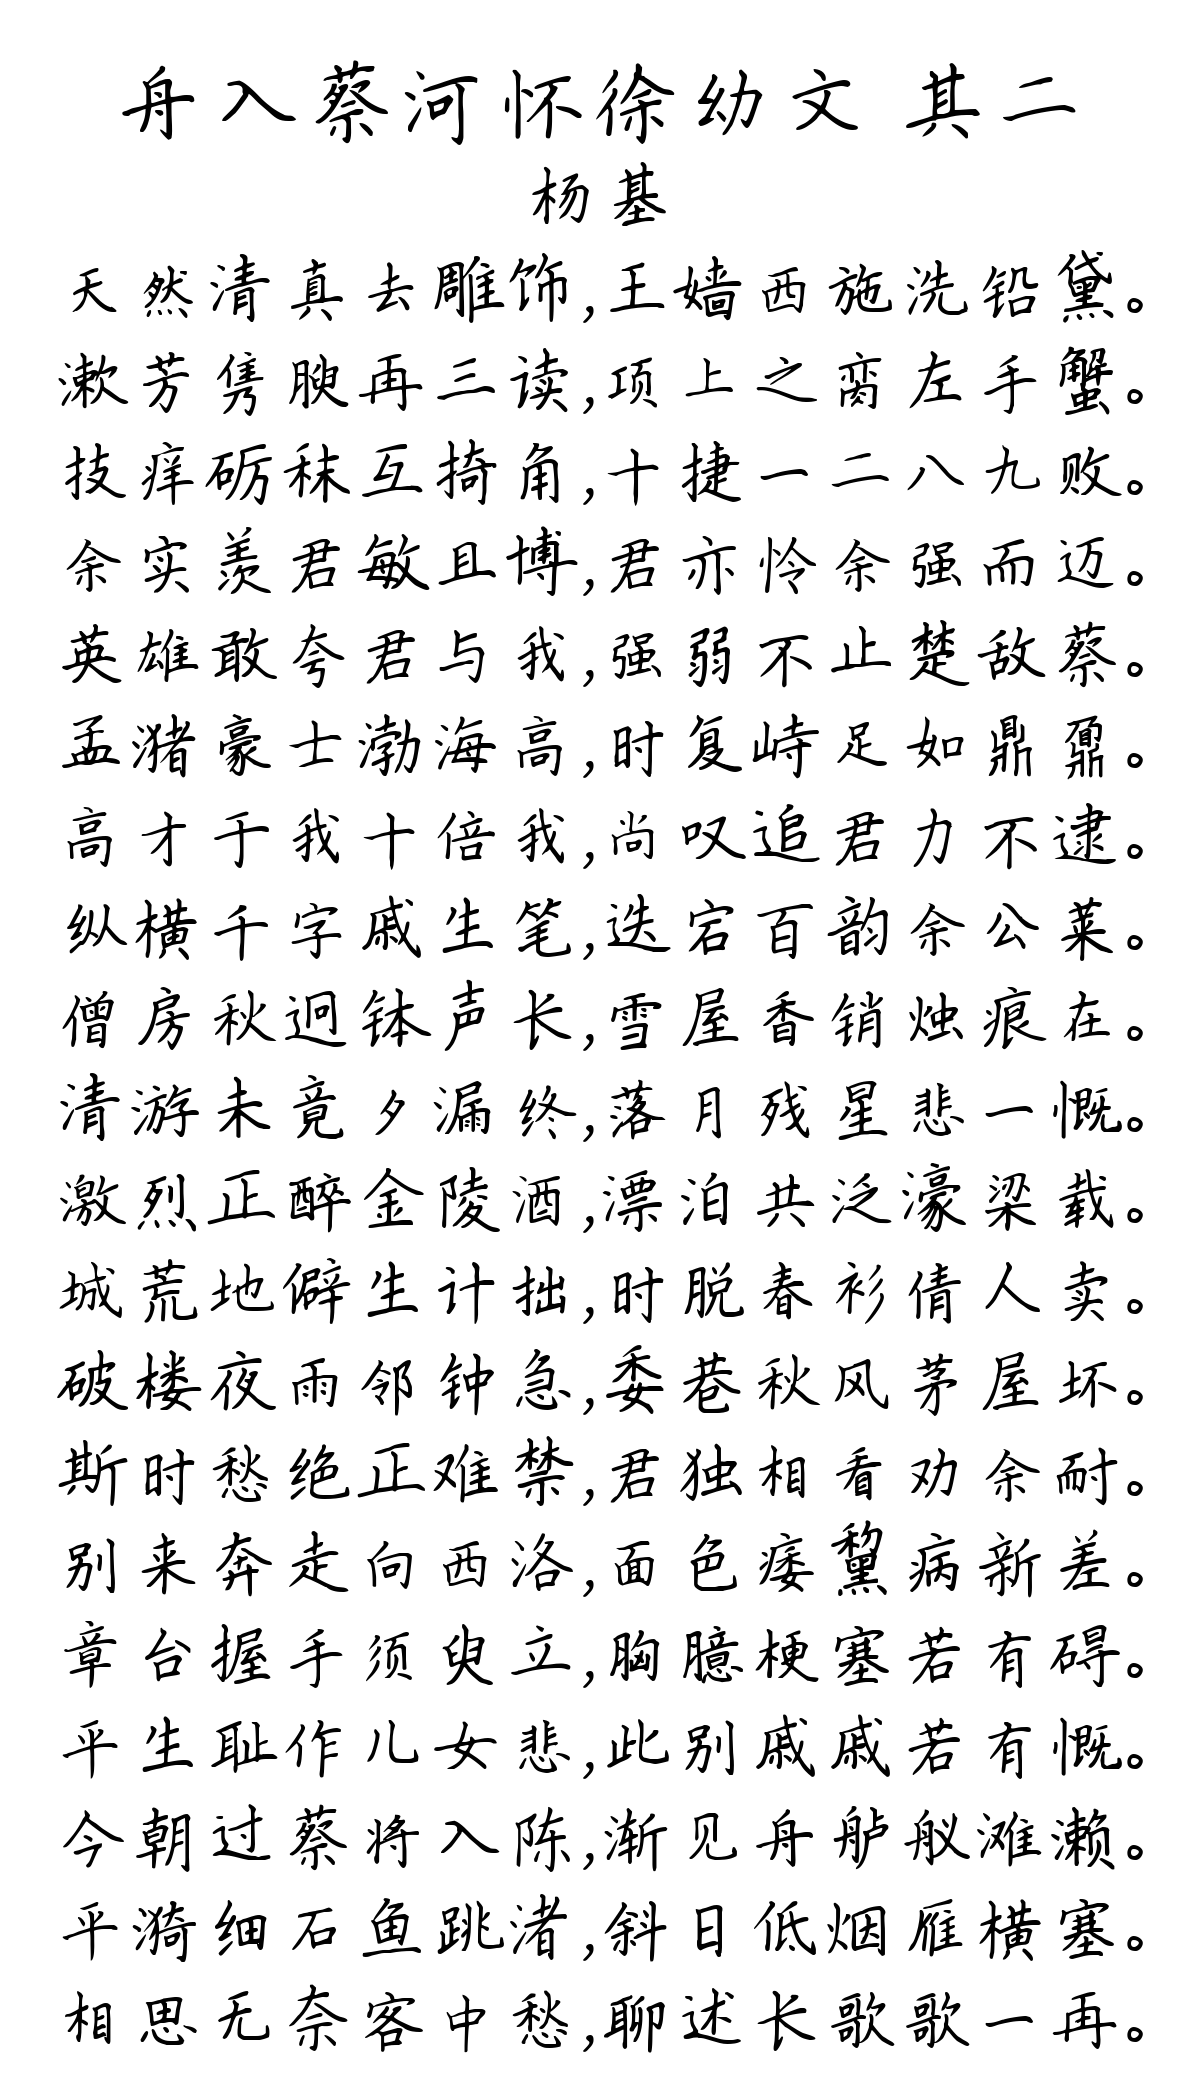 舟入蔡河怀徐幼文 其二
杨基
天然清真去雕饰,王嫱西施洗铅黛。
漱芳隽腴再三读,项上之脔左手蟹。
技痒砺秣互掎角,十捷一二八九败。
余实羡君敏且博,君亦怜余强而迈。
英雄敢夸君与我,强弱不止楚敌蔡。
孟潴豪士渤海高,时复峙足如鼎鼐。
高才于我十倍我,尚叹追君力不逮。
纵横千字戚生笔,迭宕百韵余公莱。
僧房秋迥钵声长,雪屋香销烛痕在。
清游未竟夕漏终,落月残星悲一慨。
激烈正醉金陵酒,漂泊共泛濠梁载。
城荒地僻生计拙,时脱春衫倩人卖。
破楼夜雨邻钟急,委巷秋风茅屋坏。
斯时愁绝正难禁,君独相看劝余耐。
别来奔走向西洛,面色痿黧病新差。
章台握手须臾立,胸臆梗塞若有碍。
平生耻作儿女悲,此别戚戚若有慨。
今朝过蔡将入陈,渐见舟舻舣滩濑。
平漪细石鱼跳渚,斜日低烟雁横塞。
相思无奈客中愁,聊述长歌歌一再。